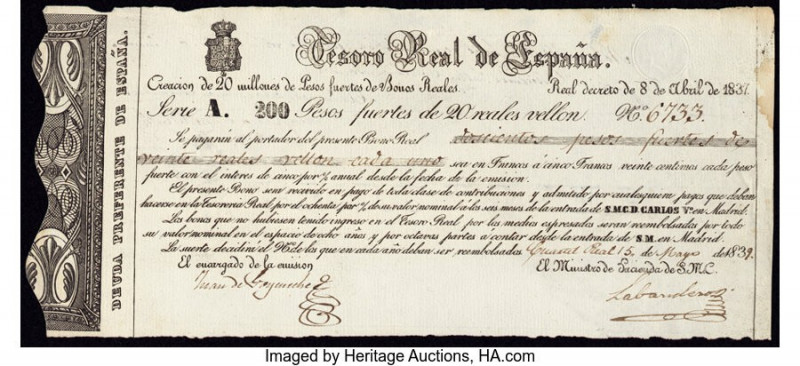 DEUDA PREFERENTE DE ESPAÑA.
Tesoro Real de España.
Creacion de 20 millones de Pesos fuertes de Bonos Reales. Real decreto de 8 de Abril de 1837.
Serie A. 200 Pesos fuertes de 20 reales vellon. No. 6733.
Se pagarán al portador del presente Bono Real dosientos pesos fuertes de
veinte reales vellon cada uno sea en Francos á cinco Francos veinte centimos cada peso
fuerte con el interes de cinco por % anual desde la fecha de la emision.
El presente Bono será recivido en pago de toda clase de contribuciones y admitido por cualesquiera pagos que deban
hacerse en la Tesoreria Real por el ochenta por % de su valor nominal á los seis meses de la entrada de S.M.C.D. CARLOS Vº en Madrid.
Los bonos que no hubiesen tenido ingreso en el Tesoro Real por los medios espresados seran reembolsados por todo
su valor nominal en el espacio de ocho años y por octavas partes a contar desde la entrada de S.M. en Madrid.
La suerte decidirá el No. de los que en cada año deban ser reembolsados Cuartel Real 15 de Mayo de 1839.
El encargado de la emision El Ministro de Hacienda de S.M.C.
Juan de
Labandero
Imaged by Heritage Auctions, HA.com